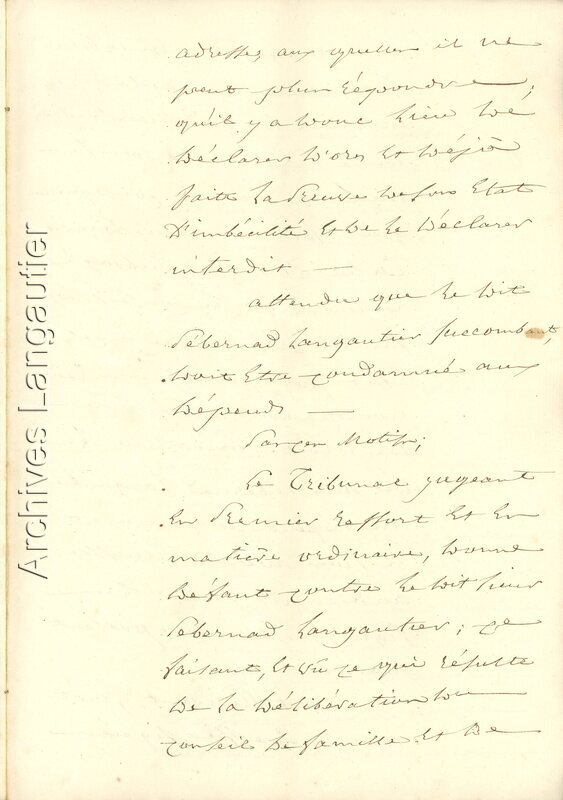 adressés, aux quelles il ne
peut plus répondre,
qu'il y a donc lieu de
déclarer d'ores et déjà
faite la preuve de son état
d'imbécilité et de le déclarer
interdit —
attendu que le dit
Débernad Langautier succombant,
doit être condamné aux
dépends —
Par ces Motifs;
Le Tribunal jugeant
En Premier ressort et en
matière ordinaire, donne
défaut contre le dit sieur
Débernad Langautier; ce
faisant, et vu ce qui résulte
de la délibération du
conseil de famille et de
Archives Langautier